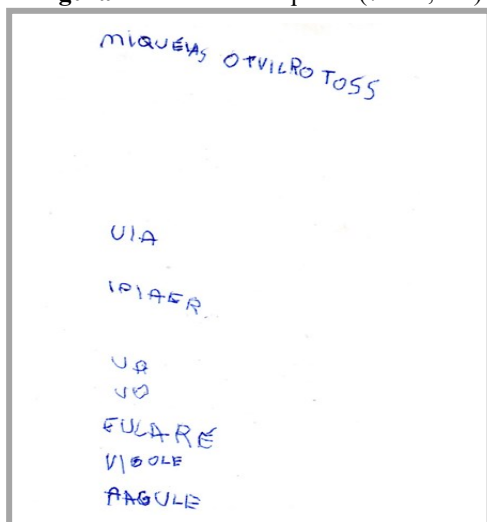 MIQUÉIAS OTVILRO TOSS
UIA
IPIAER.
UA
UO
EULARÉ
VIBOLE
AAGULE